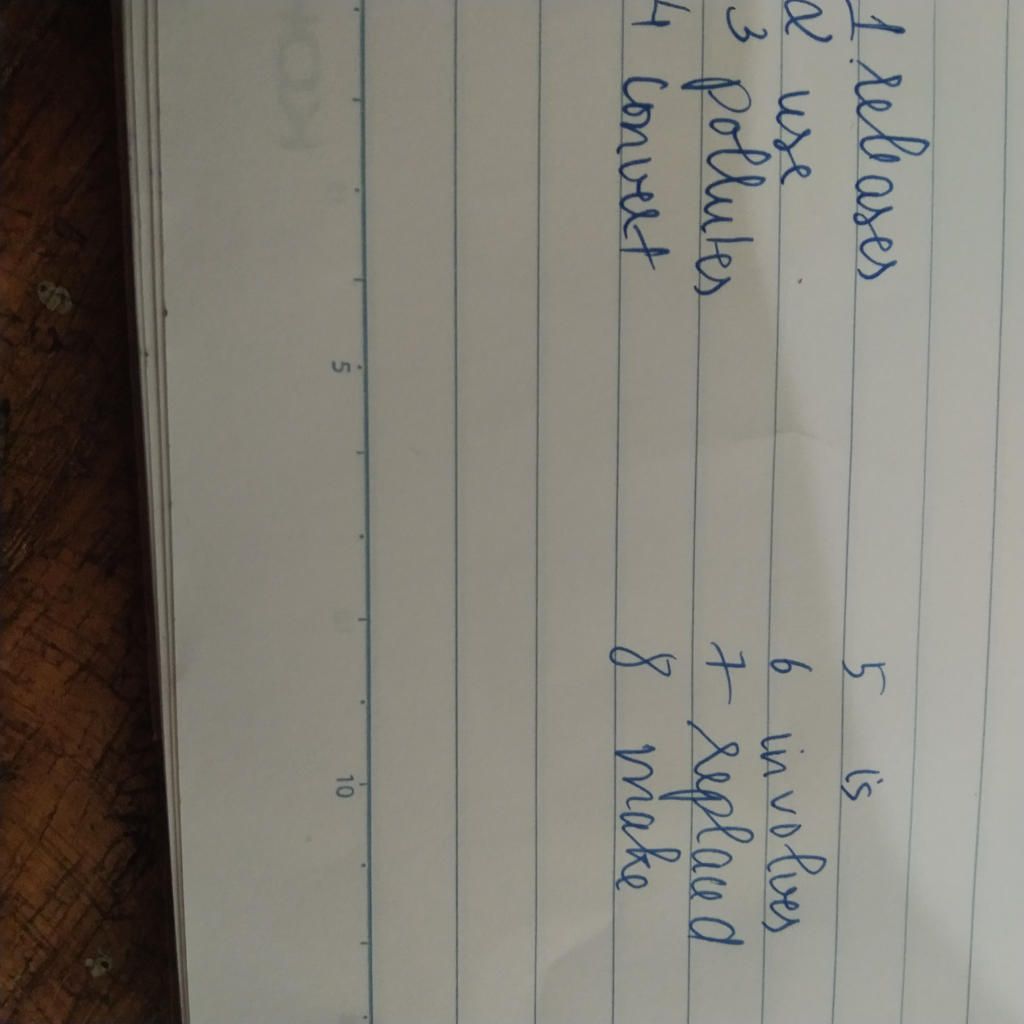 1 releases 5 is
2 use 6 involves
3 pollutes 7 replaced
4 convert 8 make
5 10